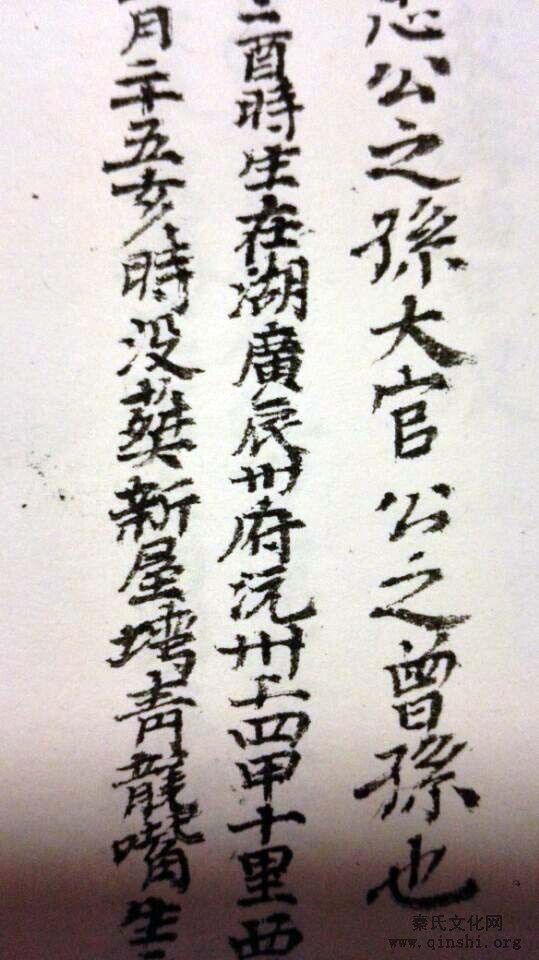 忠公之孫大官公之曾孫也
二酉時生在湖廣辰卅府沅卅上四甲十里西
月二十五亥時没葬新屋塆青龍嘴生
秦氏文化网
www.qinshi.org